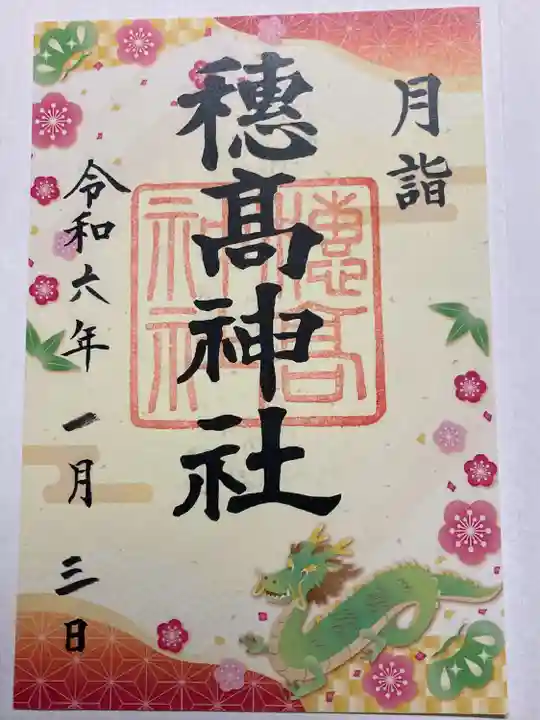 月詣
穗髙神社
穗高神社
令和六年一月三日